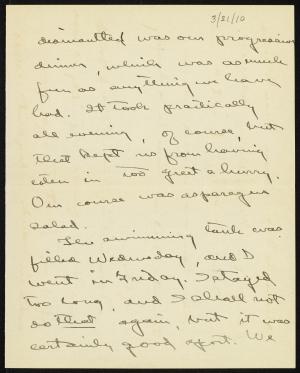 3/21/10
dismantled was our progressive
dinner, which was as much
fun as anything we have
had. It took practically
all evening, of course, but
that kept us from having
eden in too great a hurry.
Our course was asparagus
salad.
The swimming tank was
filled Wednesday, and I
went in Friday. I stayed
too long, and I shall not
do that again, but it was
certainly good sport. We